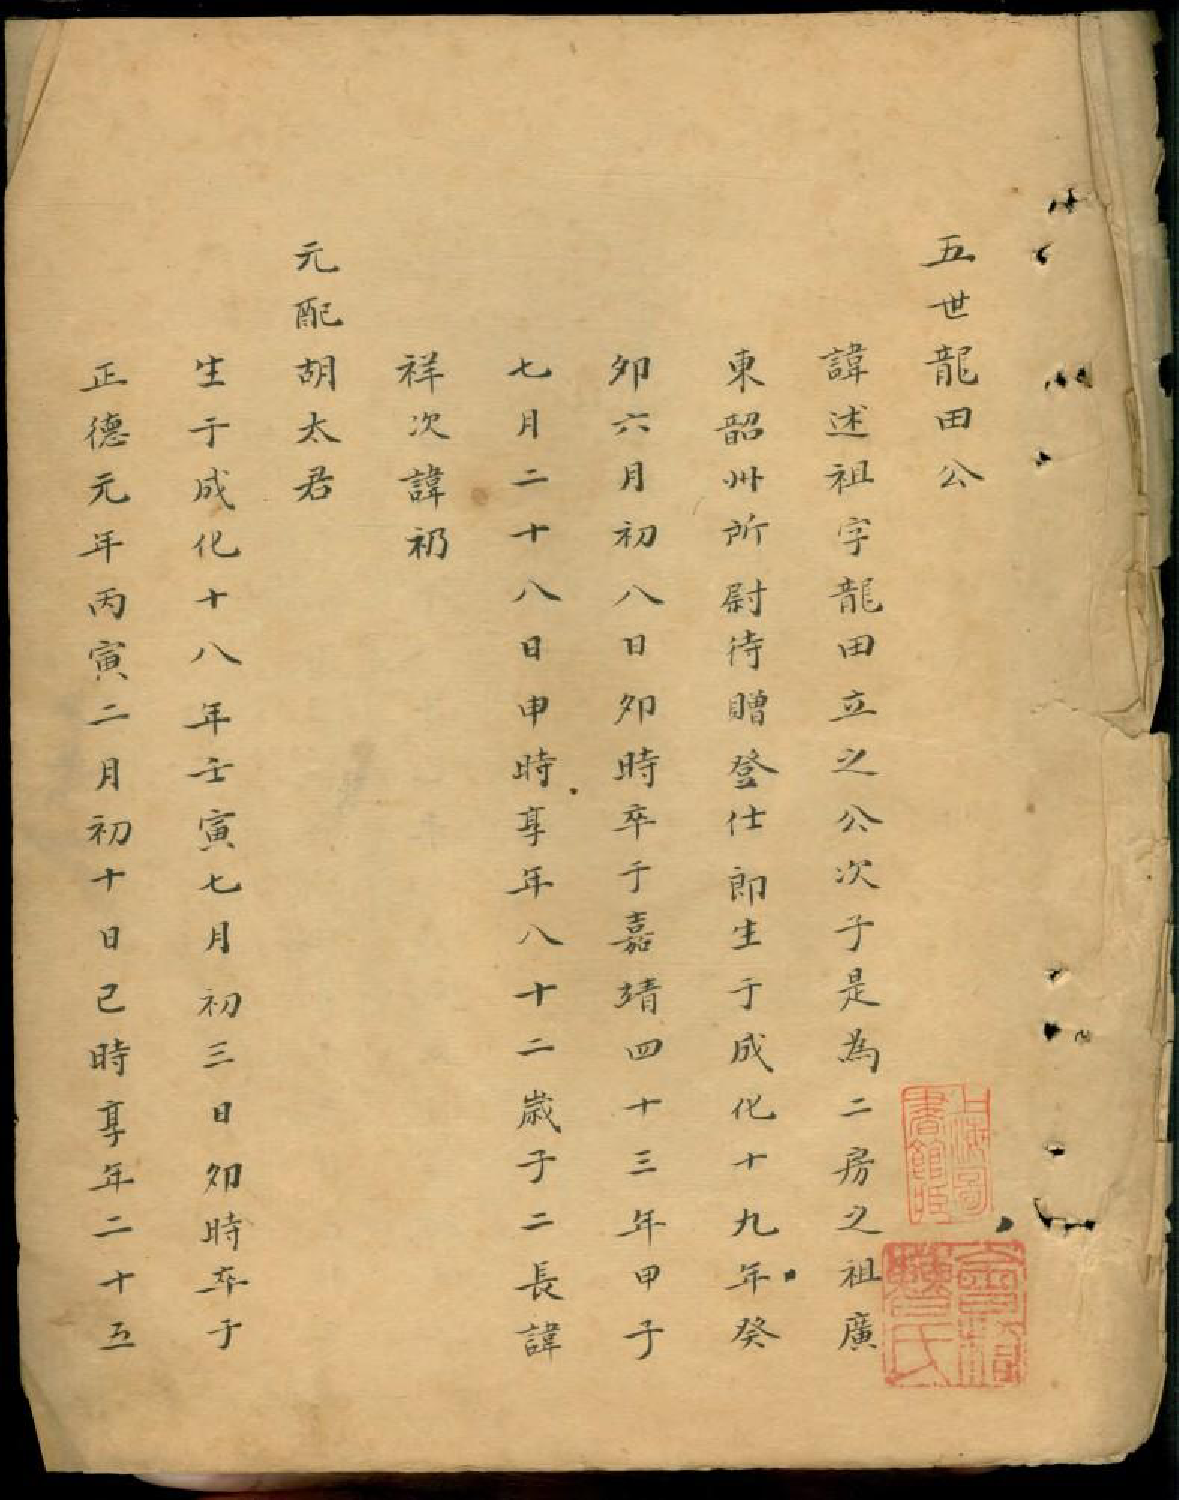 五世龍田公
諱述祖字龍田立之公次子是為二房之祖廣
東韶州所尉待贈登仕郎生于成化十九年癸
卯六月初八日卯時卒于嘉靖四十三年甲子
七月二十八日申時享年八十二歲子二長諱
祥次諱礽
元配胡太君
生于成化十八年壬寅七月初三日卯時卒于
正德元年丙寅二月初十日已時享年二十五
上海圖
書館臧